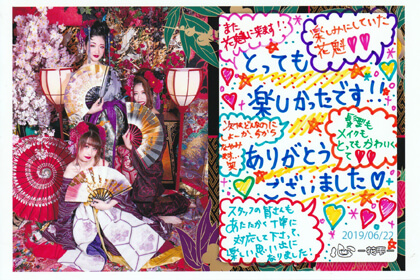 また
花魁に来ます!!
楽しみにしていた
花魁
とっても
楽しかったです!!
次はどんなのに
しようか、今から
髪型も
メイクも
とってもかわいくて
ありがとう
ございました
スタッフの皆さんも
あたたかく丁寧に
対応して下さって、
楽しい思い出に
なりました!
2019/06/22